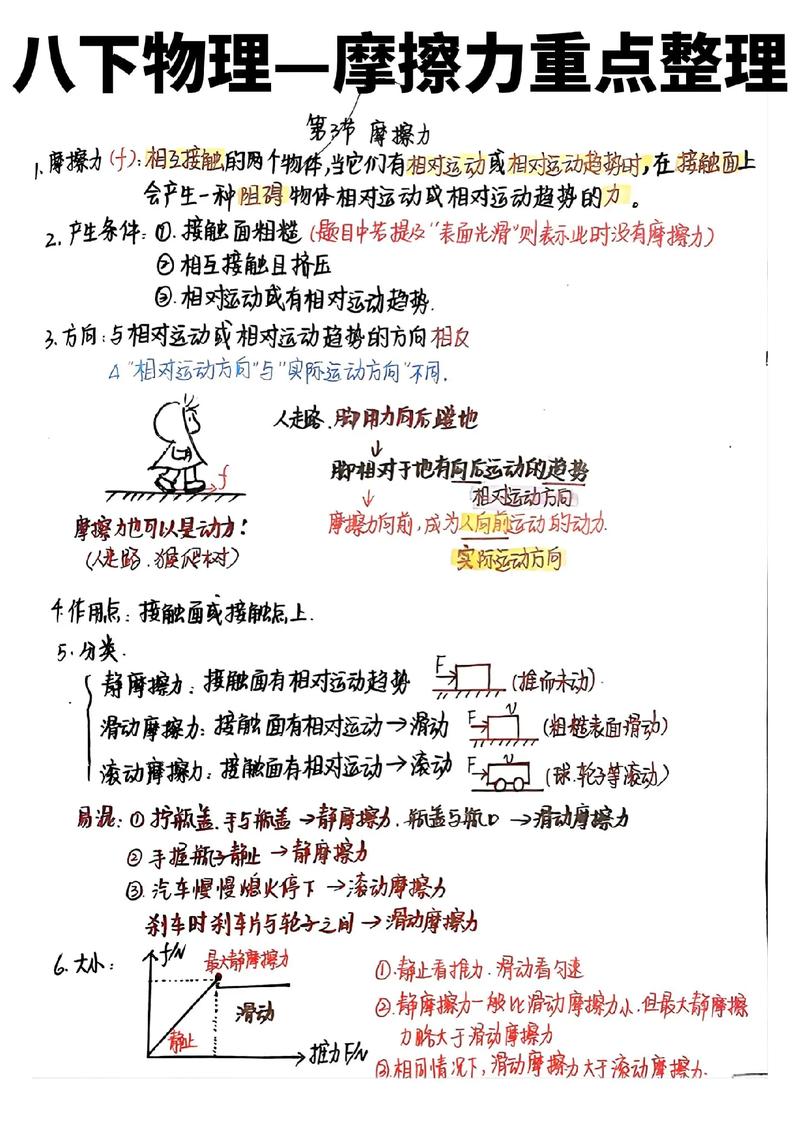 八下物理—摩擦力重点整理
第3节 摩擦力
1.摩擦力(f):相互接触的两个物体,当它们有相对运动或相对运动趋势时,在接触面上
会产生一种阻碍物体相对运动或相对运动趋势的力。
2.产生条件:①.接触面粗糙(题目中若提及“表面光滑”则表示此时没有摩擦力)
②相互接触且挤压
③.相对运动或有相对运动趋势.
3.方向:与相对运动或相对运动趋势的方向相反
△“相对运动方向”与“实际运动方向”不同.
人走路.脚用力向后蹬地
↓
脚相对于地有向后运动的趋势
f
↓
相对运动方向
摩擦力也可以是动力!
摩擦力向前,成为人向前运动的动力.
(人走路.猴爬树)
实际运动方向
4.作用点:接触面或接触点上.
5.分类.
静摩擦力:接触面有相对运动趋势 F (推而未动).
滑动摩擦力:接触面有相对运动→滑动 F v (粗糙表面滑动)
滚动摩擦力:接触面有相对运动→滚动 F v (球.轮子等滚动)
易混:①拧瓶盖.手与瓶盖→静摩擦力.瓶盖与瓶口→滑动摩擦力
②手握瓶子静止→静摩擦力
③.汽车慢慢熄火停下→滚动摩擦力
刹车时刹车片与轮子之间→滑动摩擦力
6.大小:
f/N
最大静摩擦力
滑动
静止
推力F/N
①.静止看推力.滑动看匀速
②.静摩擦力一般比滑动摩擦力小,但最大静摩擦
力略大于滑动摩擦力
③.相同情况下,滑动摩擦力大于滚动摩擦力.